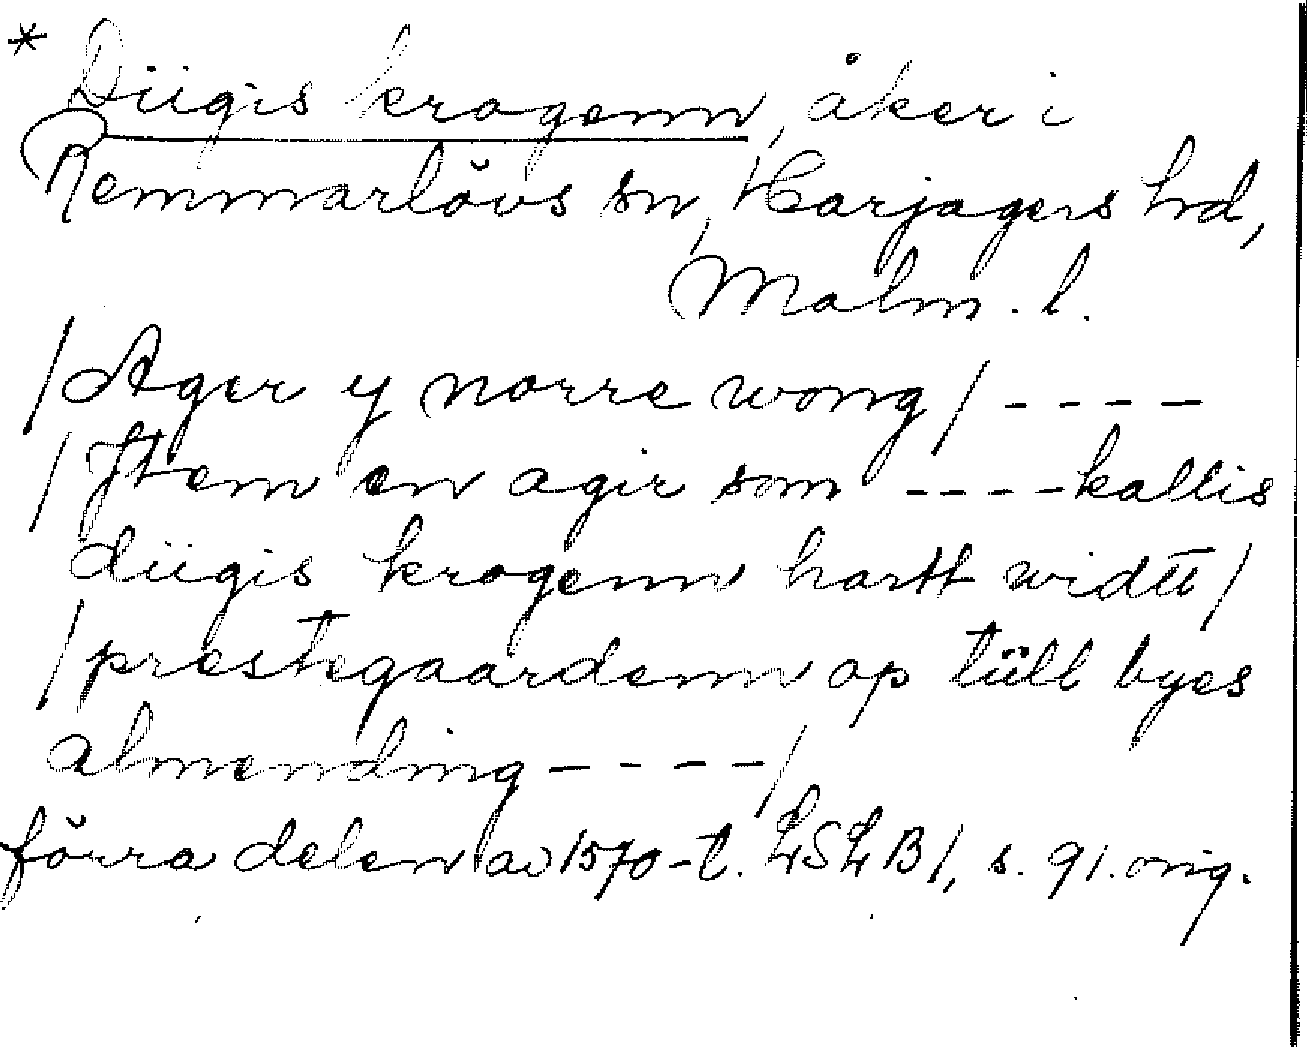 * Diigis krogenn, åker i
Remmarlövs sn, Harjagers hd,
Malm. l.
/Ager y norre wong/ ----
/Jtem en agir som ---- kallis
diigis krogenn hartt widtt/
/prestegaardenn op tüll byes
almending ----/
förra delen av 1570-t. LSLB1, s. 91. orig.